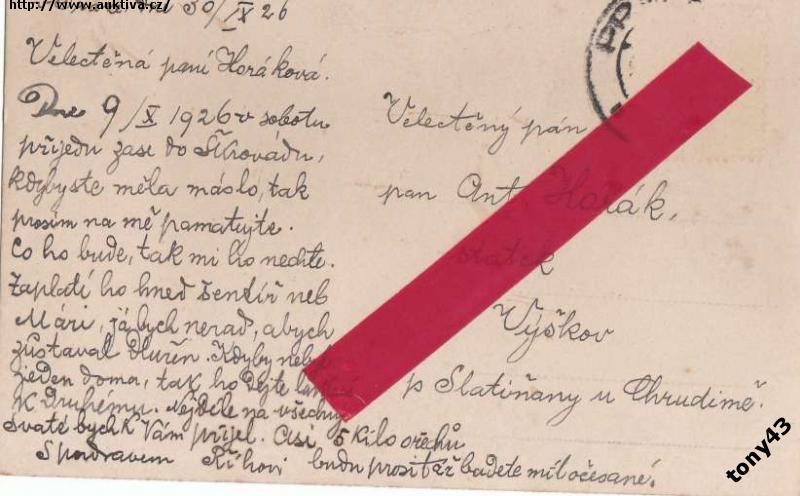 http://www.auktiva.cz/
30/IX 26
Velectěná paní Horáková.
Dne 9/X 1926 v sobotu
přijedu zase do Škrovádu,
kdybyste měla máslo, tak
prosím na mě pamatujte.
Co ho bude, tak mi ho nechte.
Zaplatí ho hned Šentíř neb
Mári, já bych nerad, abych
zůstával dlužen. Kdyby nebyl
jeden doma, tak ho dejte
k druhému. Nejdéle na všechny
svaté bych k Vám přijel. Asi 5 kilo ořechů
S pozdravem Říhovi budu prosit až budete mít očesané.
Velectěný pán
pan Ant. Horák,
statek
Výškov
p Slatiňany u Chrudimě.
tony43